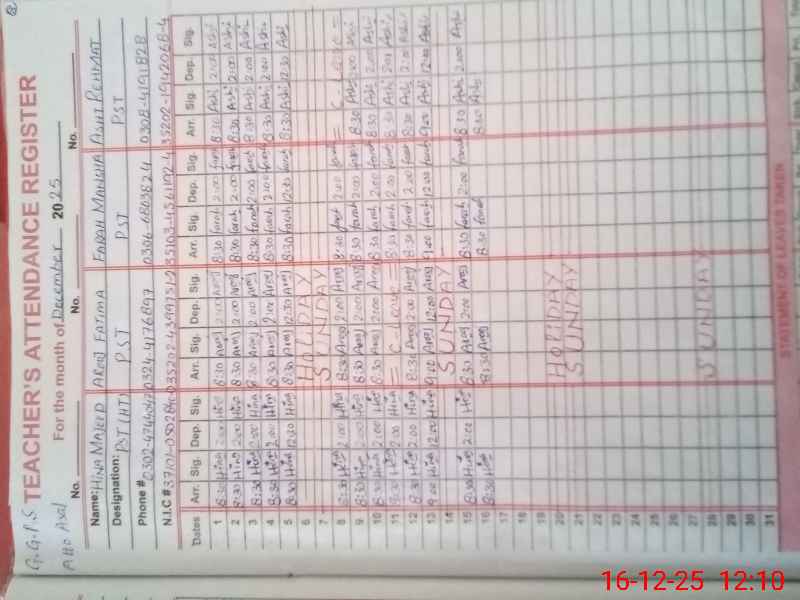 G.G.P.S
TEACHER'S ATTENDANCE REGISTER
Atto Asal
For the month of December 2025
No. No. No.
Name: HINA MAJEED AROOJ FATIMA FARAH MANSHA ASHI REHMAT
Designation: PST (HT) PST PST PST
Phone # 0324-4176897 0306-6803624 0308-4191828
N.I.C #
Dates Arr. Sig. Dep. Sig. Arr. Sig. Dep. Sig. Arr. Sig. Dep. Sig. Arr. Sig. Dep. Sig.
1 8:30 Hina 2:00 Hina 8:30 Arooj 2:00 Arooj 8:30 farah 2:00 farah 8:30 Ashi 2:00 Ashi
2 8:30 Hina 2:00 Hina 8:30 Arooj 2:00 Arooj 8:30 farah 2:00 farah 8:30 Ashi 2:00 Ashi
3 8:30 Hina 2:00 Hina 8:30 Arooj 2:00 Arooj 8:30 farah 2:00 farah 8:30 Ashi 2:00 Ashi
4 8:30 Hina 2:00 Hina 8:30 Arooj 2:00 Arooj 8:30 farah 2:00 farah 8:30 Ashi 2:00 Ashi
5 8:30 Hina 12:30 Hina 8:30 Arooj 12:30 Arooj 8:30 farah 12:30 farah 8:30 Ashi 12:30 Ashi
6 HOLIDAY
7 SUNDAY
8 8:30 Hina 2:00 Hina 8:30 Arooj 2:00 Arooj 8:30 farah 2:00 farah = C-Leave =
9 8:30 Hina 2:00 Hina 8:30 Arooj 2:00 Arooj 8:30 farah 2:00 farah 8:30 Ashi 2:00 Ashi
10 8:30 Hina 2:00 Hina 8:30 Arooj 2:00 Arooj 8:30 farah 2:00 farah 8:30 Ashi 2:00 Ashi
11 8:30 Hina 2:00 Hina = C-Leave = 8:30 farah 2:00 farah 8:30 Ashi 2:00 Ashi
12 8:30 Hina 2:00 Hina 8:30 Arooj 2:00 Arooj 8:30 farah 2:00 farah 8:30 Ashi 2:00 Ashi
13 9:00 Hina 12:00 Hina 9:00 Arooj 12:00 Arooj 9:00 farah 12:00 farah 9:00 Ashi 12:00 Ashi
14 SUNDAY
15 8:30 Hina 2:00 Hina 8:30 Arooj 2:00 Arooj 8:30 farah 2:00 farah 8:30 Ashi 2:00 Ashi
16 8:30 Hina 8:30 Arooj 8:30 farah 8:30 Ashi
17
18
19
20 HOLIDAY
21 SUNDAY
22
23
24
25
26
27
28 SUNDAY
29
30
31
STATEMENT OF LEAVES TAKEN
16-12-25 12:10